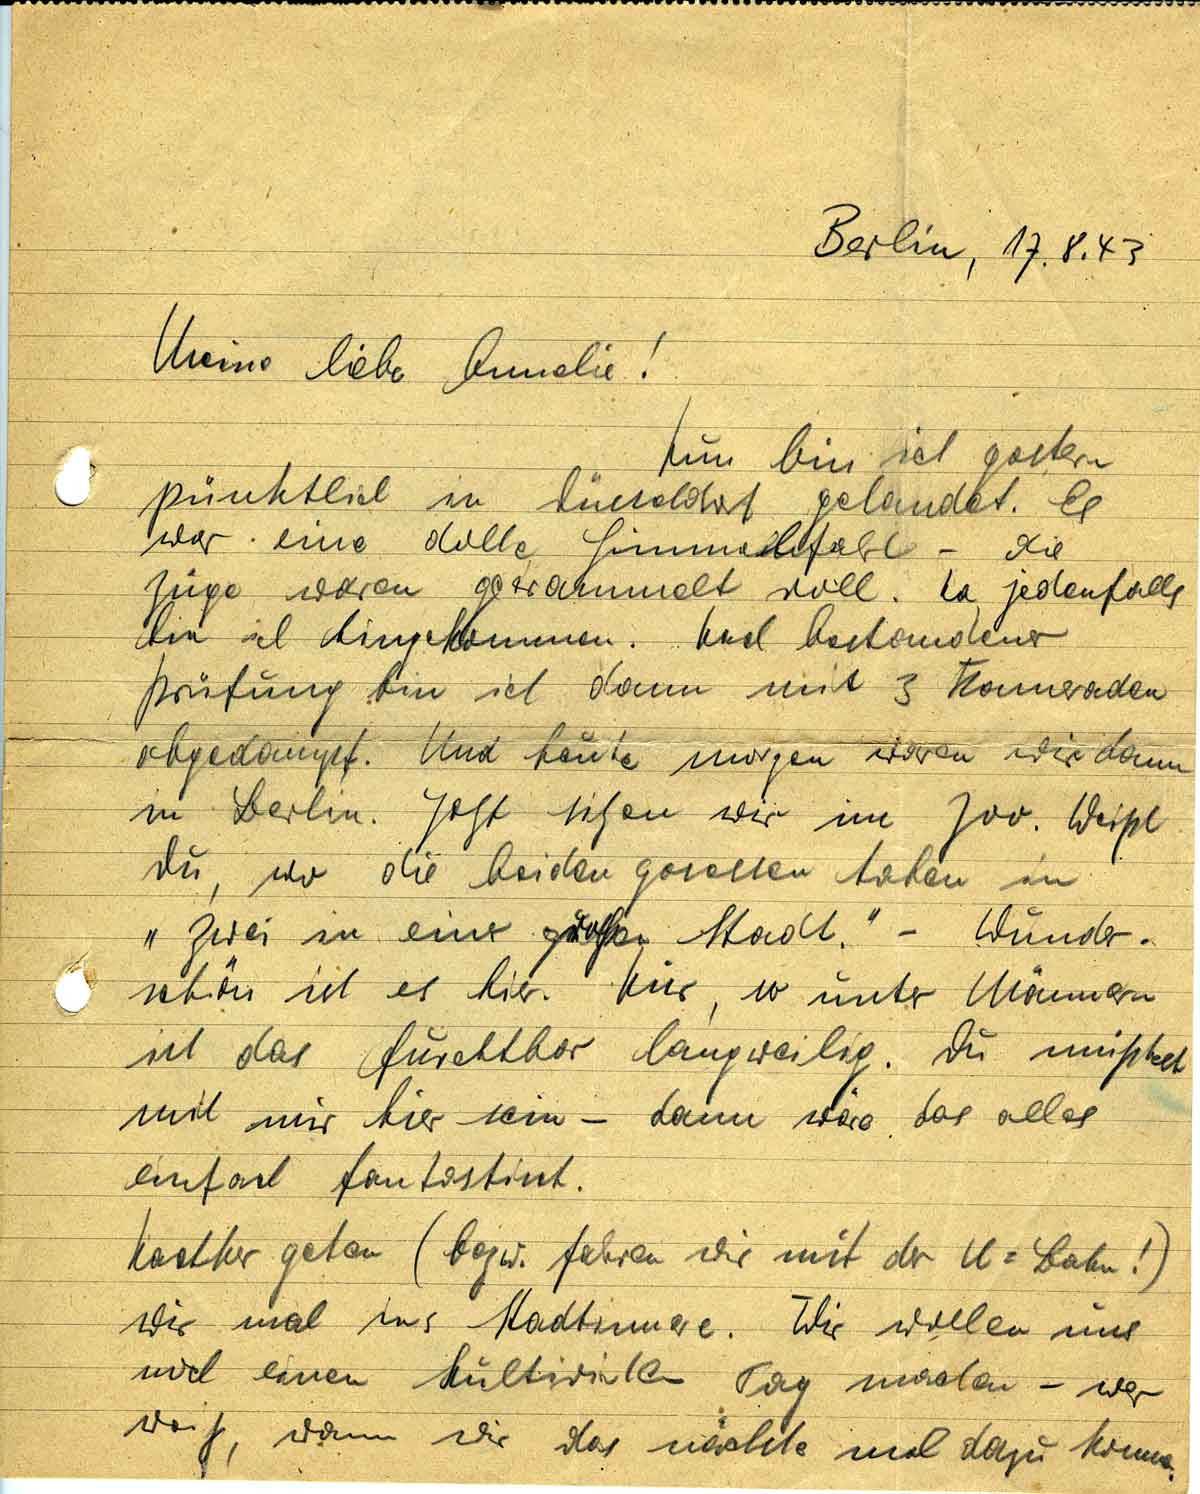 Berlin, 17.8.43
Meine liebe Annelie!
Nun bin ich gestern
pünktlich in Düsseldorf gelandet. Es
war eine dolle Himmelfahrt – die
Züge waren gerammelt voll. Na, jedenfalls
bin ich hingekommen. Nach bestandener
Prüfung bin ich dann mit 3 Kameraden
abgedampft. Und heute morgen waren wir dann
in Berlin. Jetzt sitzen wir im Zoo. Weißt
Du, wo die beiden gesessen haben in
„Zwei in einer großen Stadt." – Wunder-
schön ist es hier. Nur, so unter Männern
ist das furchtbar langweilig. Du müßtest
mit mir hier sein – dann wäre das alles
einfach fantastisch.
Nachher gehen (bezw. fahren wir mit der U=Bahn!)
wir mal ins Stadtinnere. Wir wollen uns
noch einen kultivierten Tag machen – wer
weiß, wann wir das nächste mal dazu kommen.